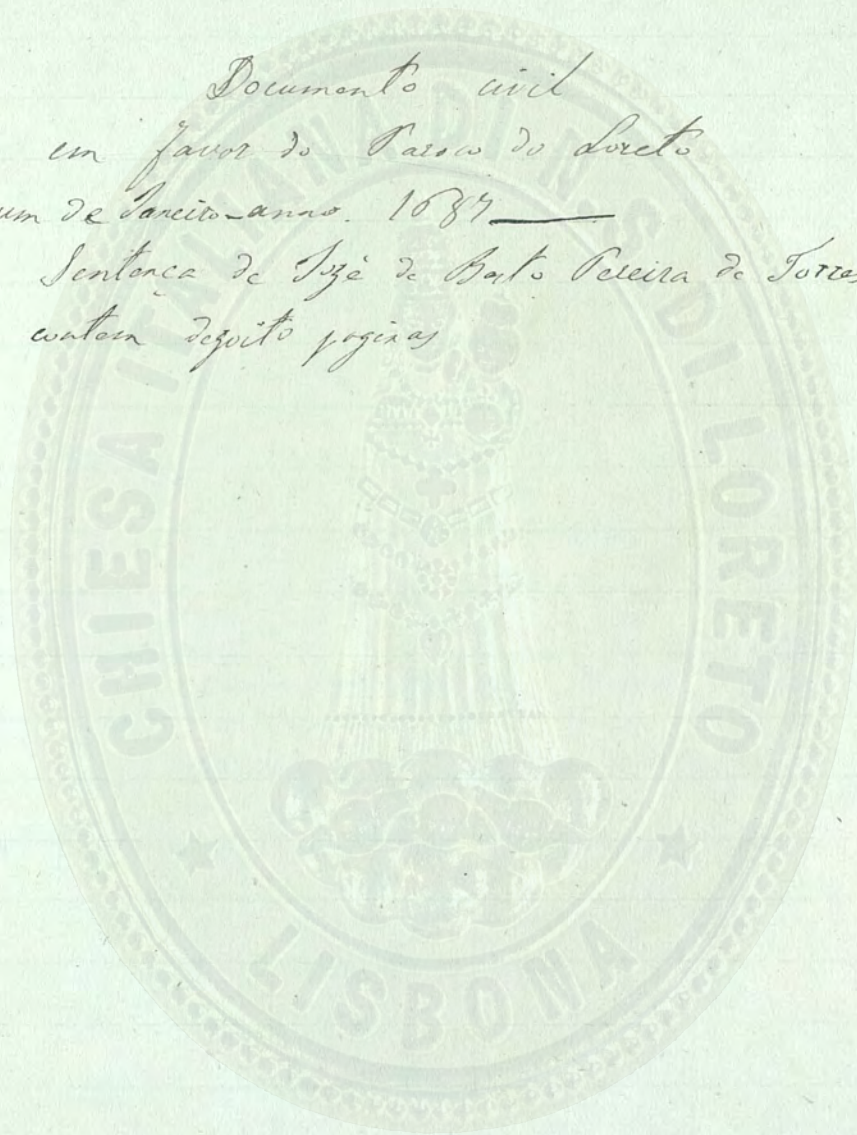 Documento civil
em favor do Paroco do Loreto
um de Janeiro - anno. 1687
Sentença de Jozè de Basto Pereira de Torres
contem dezoito paginas
CHIESA ITALIANA DI N. S. DI LORETO
★ LISBONA ★